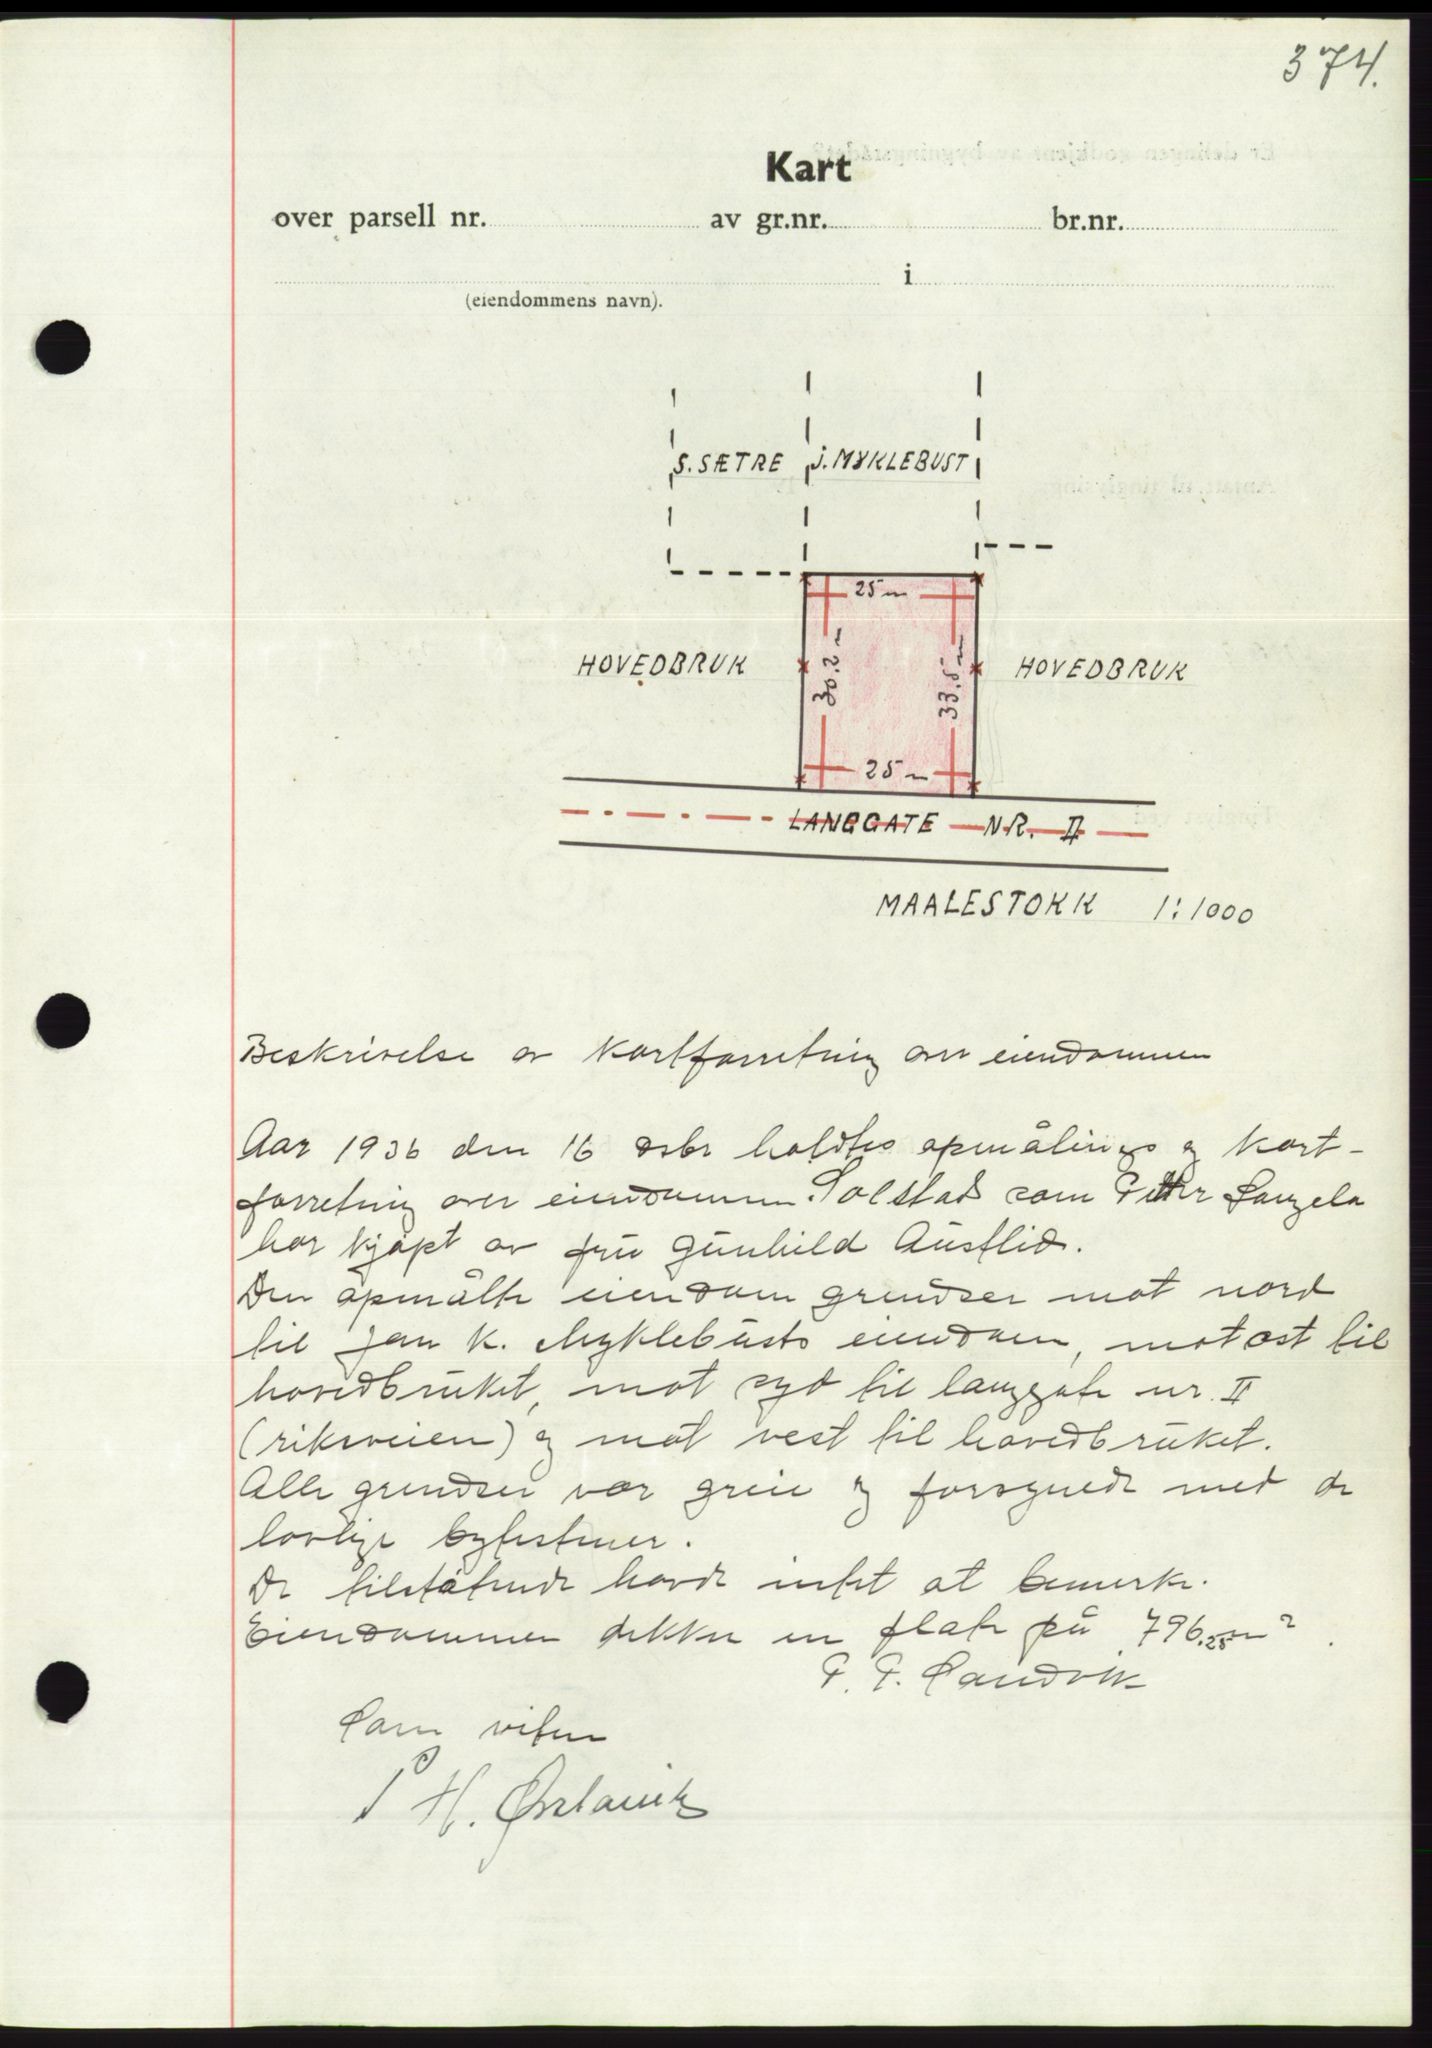 374.
Kart
over parsell nr. av gr.nr. br.nr.
i
(eiendommens navn).
S. SÆTRE J. MYKLEBUST
25 m
HOVEDBRUK 30.2 m 33.5 m HOVEDBRUK
25 m
LANGGATE NR. II
MAALESTOKK 1:1000
Beskrivelse av kartforretning over eiendommen
Aar 1936 den 16 holdtes opmålings og kart-
forretning over eiendommen Solstad som Petter
har kjøpt av fru Gunhild Austlid.
Den opmålte eiendom grendser mot nord
til Jon K. Myklebusts eiendom, mot øst til
hovedbruket, mot syd til langgate nr. II
(riksveien) og mot vest til hovedbruket.
Alle grendser var greie og forsynede med de
lovlige bytestener.
De tilstøtende havde intet at bemerke.
Eiendommen dekker en flate på 796.25 m²
P. P. Landvik
Som vitne
P H. Ørstavik